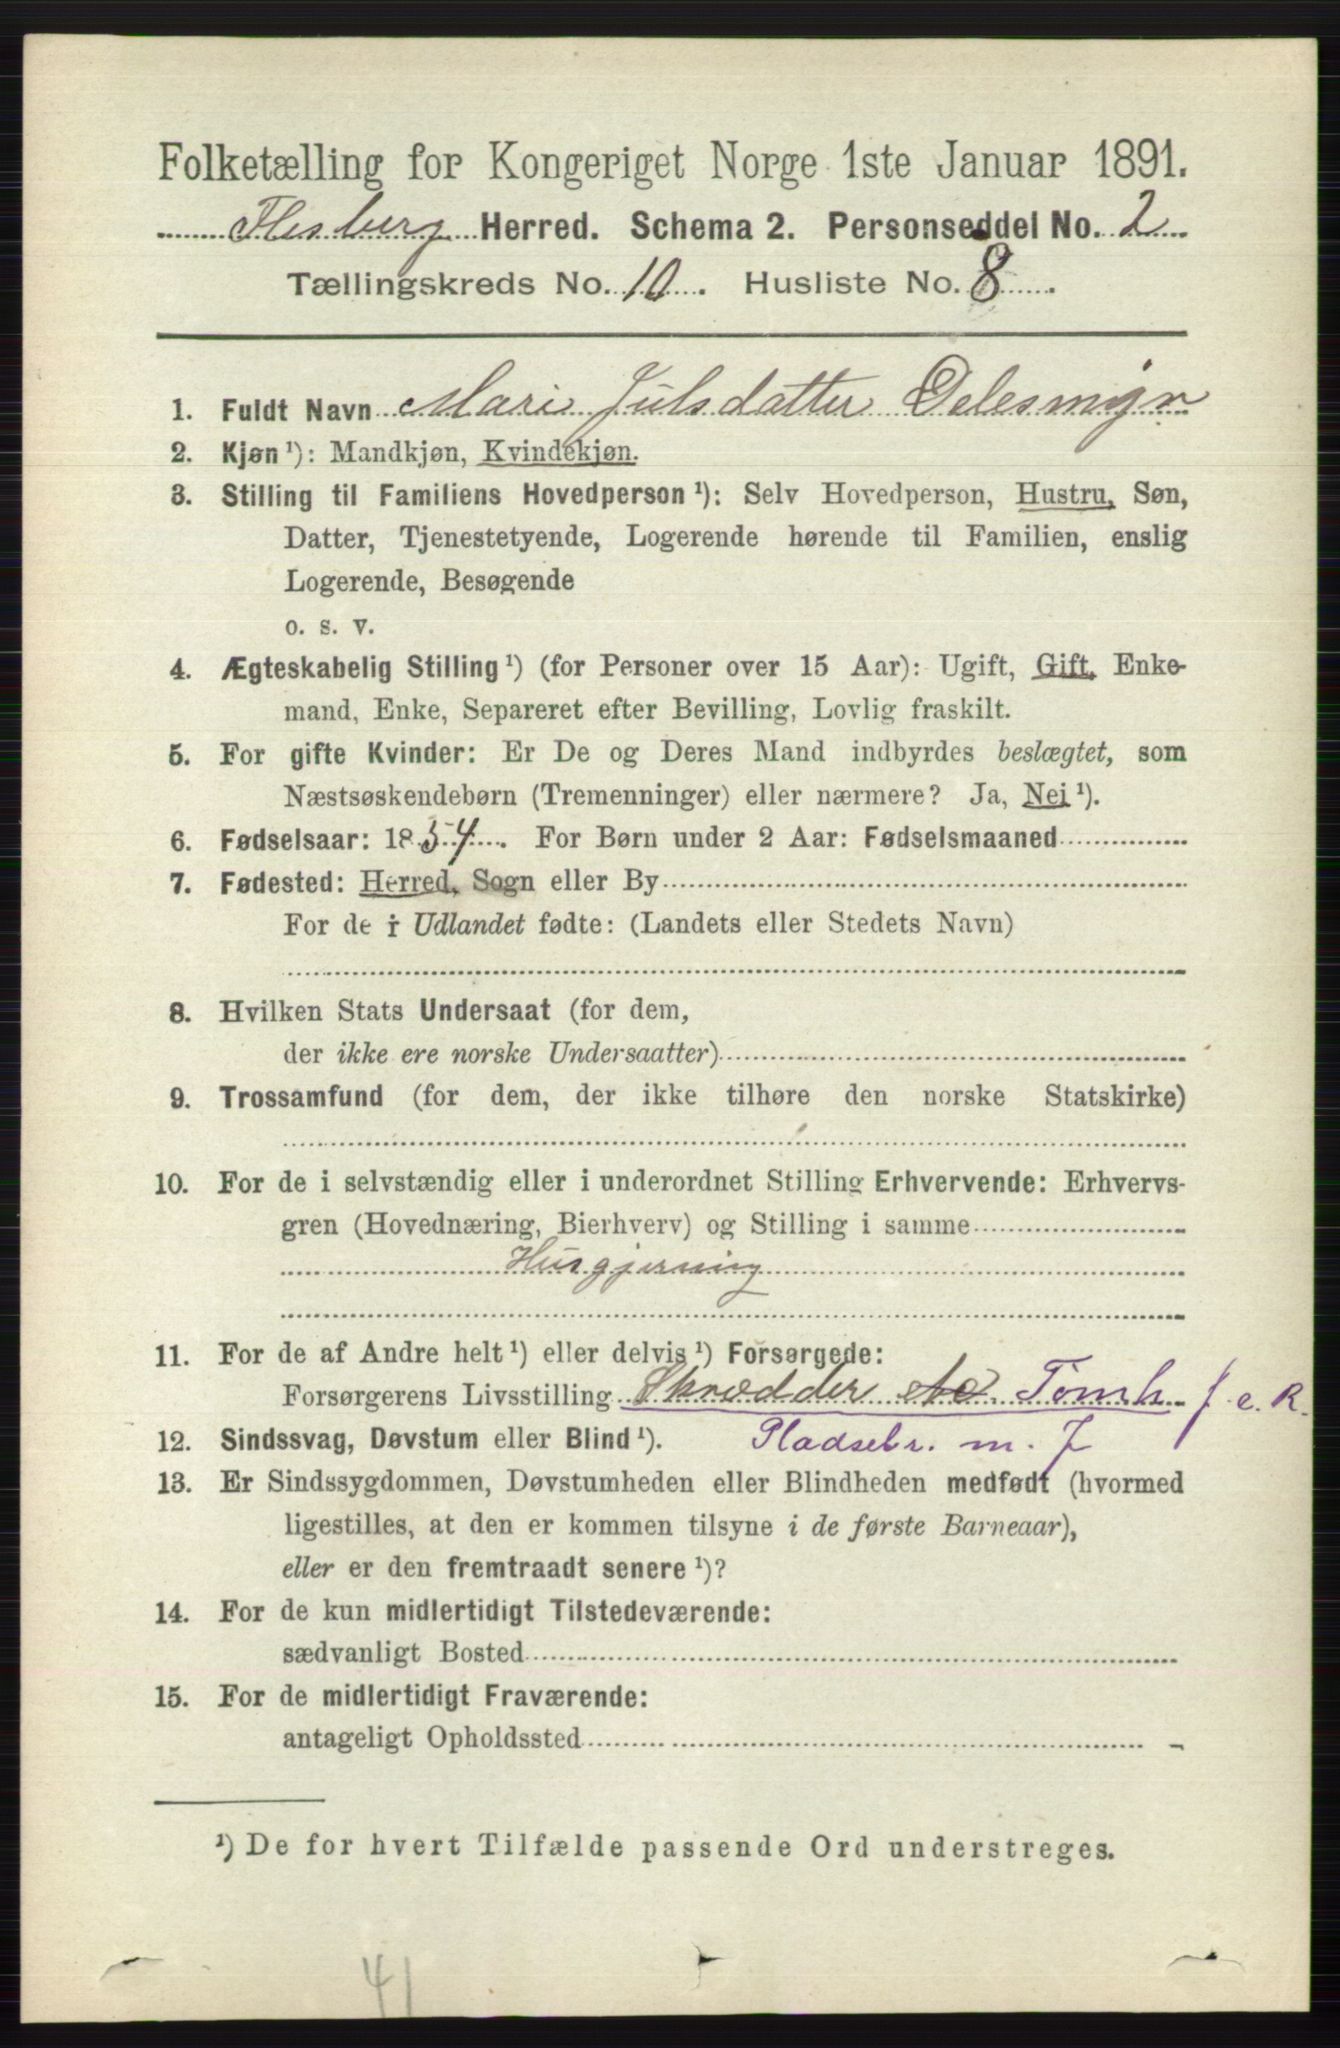 Folketælling for Kongeriget Norge 1ste Januar 1891.
Flesberg Herred. Schema 2. Personseddel No. 2
Tællingskreds No. 10. Husliste No. 8.
1. Fuldt Navn Mari Julsdatter
2. Kjøn ¹): Mandkjøn, Kvindekjøn.
3. Stilling til Familiens Hovedperson ¹): Selv Hovedperson, Hustru, Søn,
Datter, Tjenestetyende, Logerende hørende til Familien, enslig
Logerende, Besøgende
o. s. v.
4. Ægteskabelig Stilling ¹) (for Personer over 15 Aar): Ugift, Gift, Enke-
mand, Enke, Separeret efter Bevilling, Lovlig fraskilt.
5. For gifte Kvinder: Er De og Deres Mand indbyrdes beslægtet, som
Næstsøskendebørn (Tremenninger) eller nærmere? Ja, Nei ¹).
6. Fødselsaar: 1854. For Børn under 2 Aar: Fødselsmaaned
7. Fødested: Herred, Sogn eller By
For de i Udlandet fødte: (Landets eller Stedets Navn)
8. Hvilken Stats Undersaat (for dem,
der ikke ere norske Undersaatter)
9. Trossamfund (for dem, der ikke tilhøre den norske Statskirke)
10. For de i selvstændig eller i underordnet Stilling Erhvervende: Erhvervs-
gren (Hovednæring, Bierhverv) og Stilling i samme
Husgjerning
11. For de af Andre helt ¹) eller delvis ¹) Forsørgede:
Forsørgerens Livsstilling Skrædder Tömh. f. e. R.
12. Sindssvag, Døvstum eller Blind ¹). Pladsebr. m. J
13. Er Sindssygdommen, Døvstumheden eller Blindheden medfødt (hvormed
ligestilles, at den er kommen tilsyne i de første Barneaar),
eller er den fremtraadt senere ¹)?
14. For de kun midlertidigt Tilstedeværende:
sædvanligt Bosted
15. For de midlertidigt Fraværende:
antageligt Opholdssted
¹) De for hvert Tilfælde passende Ord understreges.
41